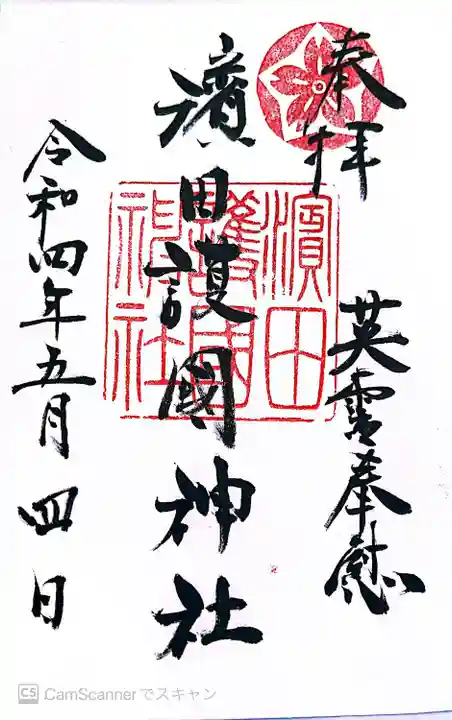 奉拝
英霊奉慰
濱田護國神社
濱田護國神社
令和四年五月四日
CS CamScannerでスキャン